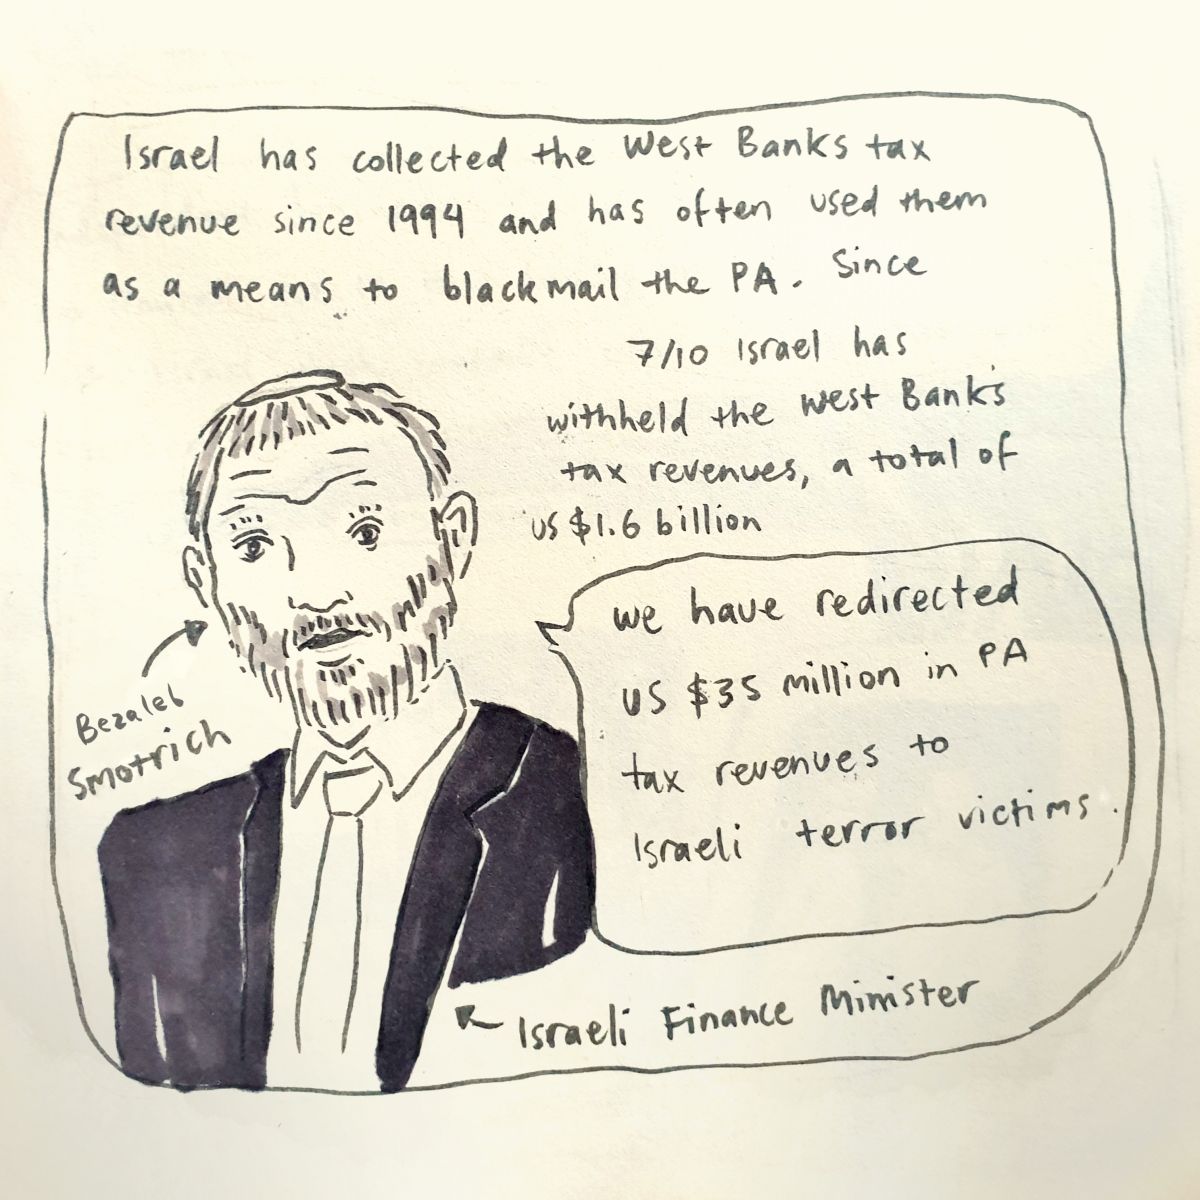 Israel has collected the West Banks tax
revenue since 1994 and has often used them
as a means to blackmail the PA. Since
7/10 Israel has
withheld the West Bank's
tax revenues, a total of
US $1.6 billion
we have redirected
US $35 million in PA
tax revenues to
Israeli terror victims.
Bezaleb
Smotrich
Israeli Finance Minister